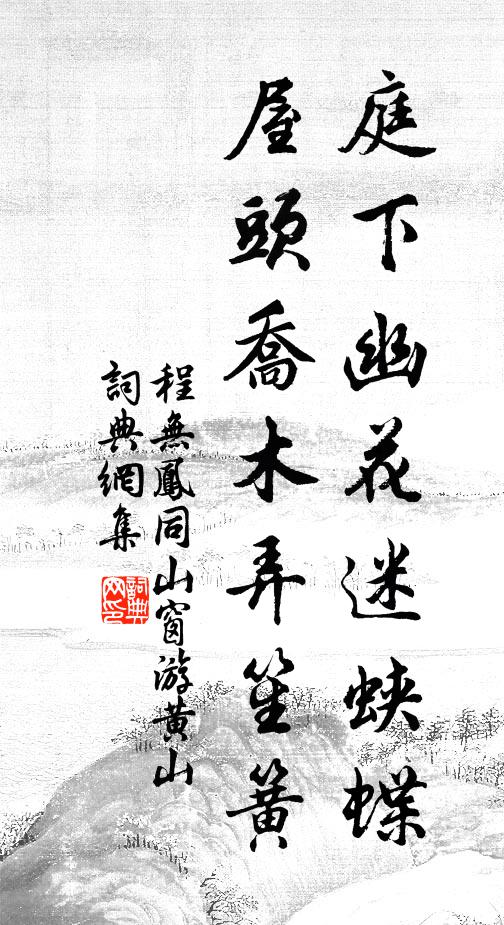 庭下幽花迷蛱蝶
屋頭喬木弄笙簧
程無鳳同山窗游黄山
詞典網集
詞典